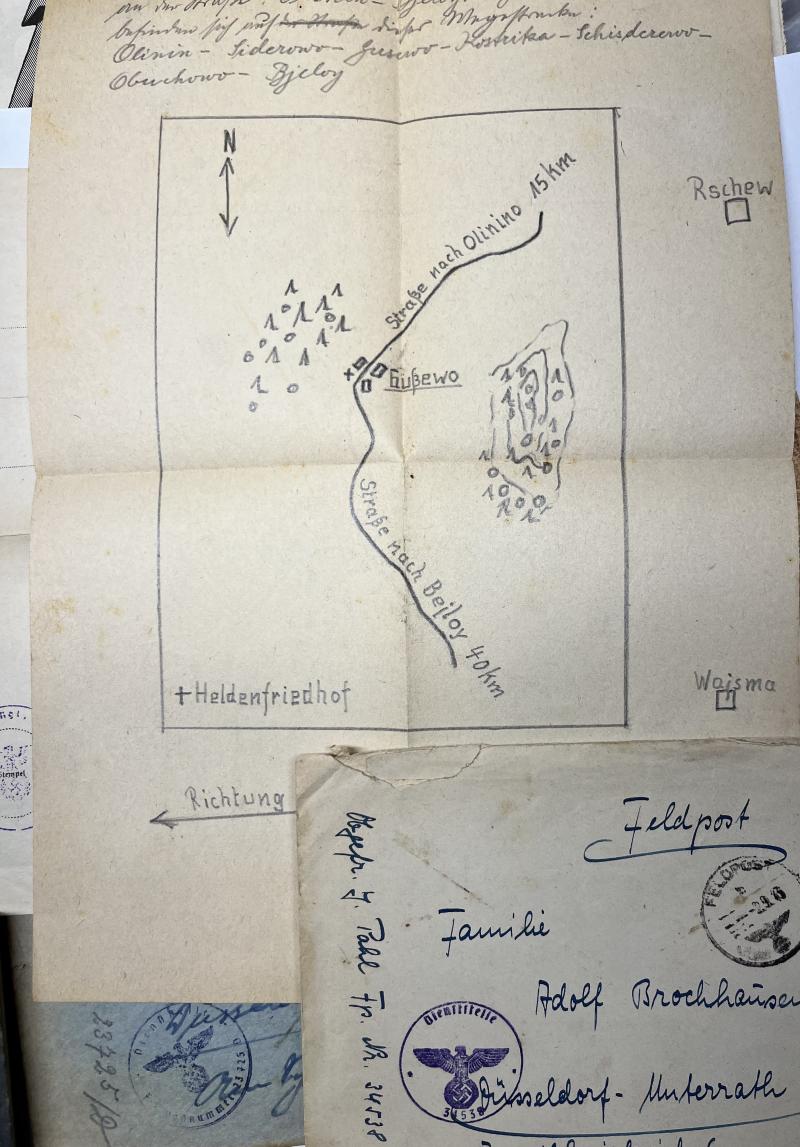 an der Straße
befinden sich auf der Straße dieser Wegestrecke:
Olinin - Siderowo - Gusewo - Kostrika - Schisderewo -
Obuchowo - Bjeloy
N
Rschew
Straße nach Olinino 15 km
Gußewo
Straße nach Bejloy 40 km
+ Heldenfriedhof
Wajsma
Richtung
Feldpost
FELDPOST
Obgefr. J. Pahl Fp. Nr. 34538
Familie
Adolf Brochhausen
Dienststelle
34538
Düsseldorf - Unterrath
23725